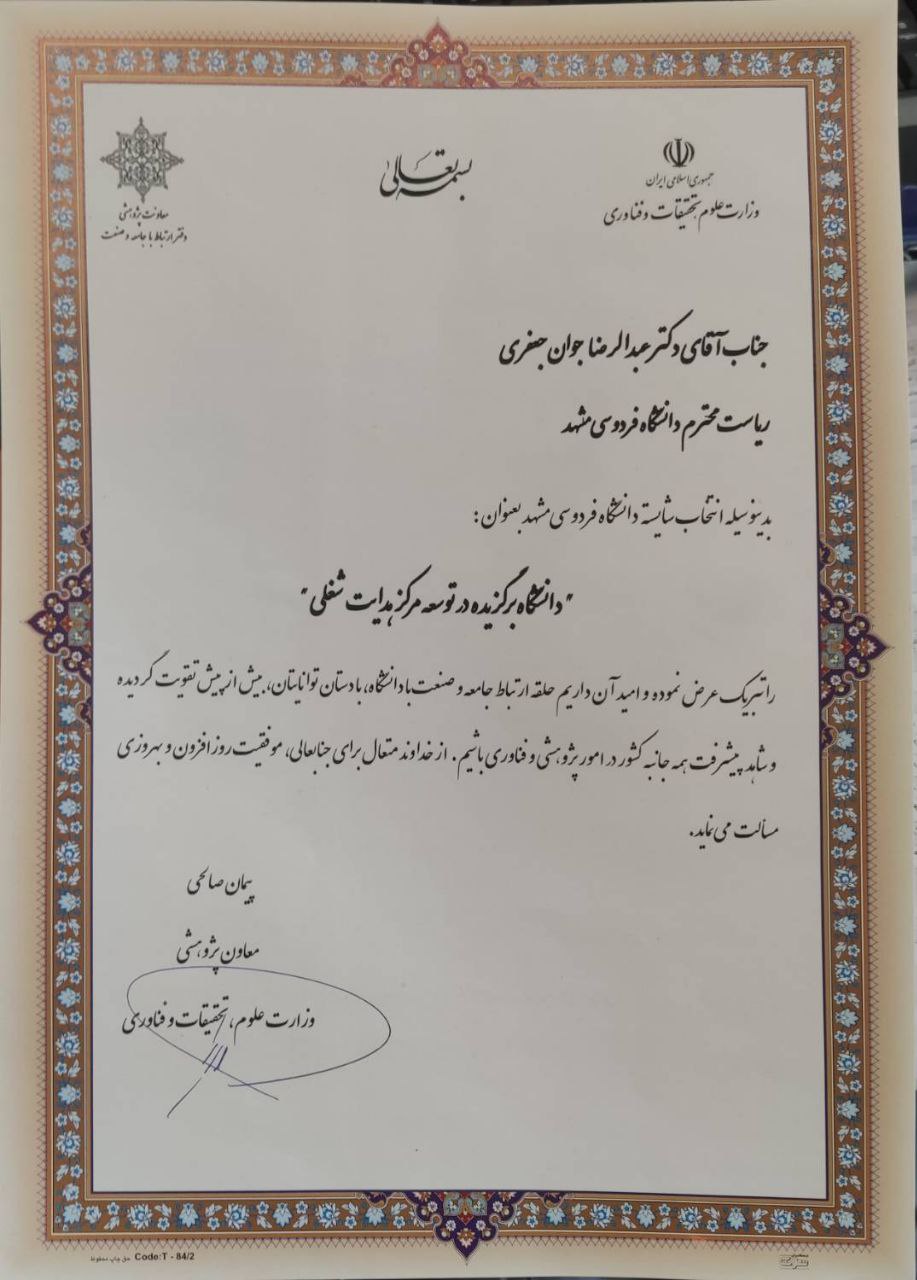 بسمه تعالی
جمهوری اسلامی ایران
وزارت علوم تحقیقات و فناوری
معاونت پژوهشی
دفتر ارتباط با جامعه و صنعت
جناب آقای دکتر عبدالرضا جوان جعفری
ریاست محترم دانشگاه فردوسی مشهد
بدینوسیله انتخاب شایسته دانشگاه فردوسی مشهد بعنوان:
"دانشگاه برگزیده در توسعه مرکز هدایت شغلی"
را تبریک عرض نموده و امید آن داریم حلقه ارتباط جامعه و صنعت با دانشگاه، با دستان تواناتان، بیش از پیش تقویت گردیده
و شاهد پیشرفت همه جانبه کشور در امور پژوهشی و فناوری باشیم. از خداوند متعال برای جنابعالی، موفقیت روزافزون و بهروزی
مسألت می نماید.
پیمان صالحی
معاون پژوهشی
وزارت علوم، تحقیقات و فناوری
Code:T - 84/2 حق چاپ محفوظ